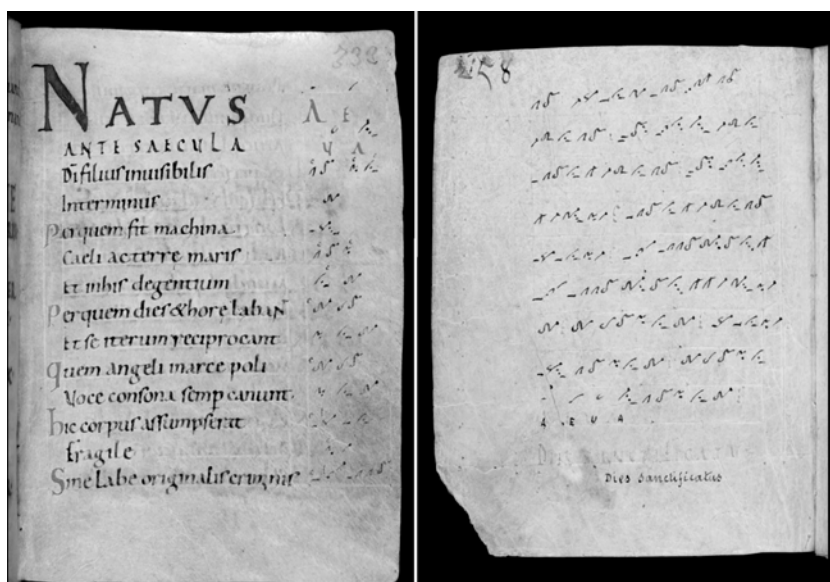 NATVS
ANTE SAECULA
Dī filius inuisibilis
Interminus
Perquem fit machina
Caeli acterre maris
Et inhis degentium
Perquem dies & hore labaṄ
Et se iterum reciprocant
Quem angeli marce poli
Voce consona semp canunt
hic corpus assumpserat
Fragile
Sine labe originalis criminis
A E
U A
A E U A
Dies Sanctificatus